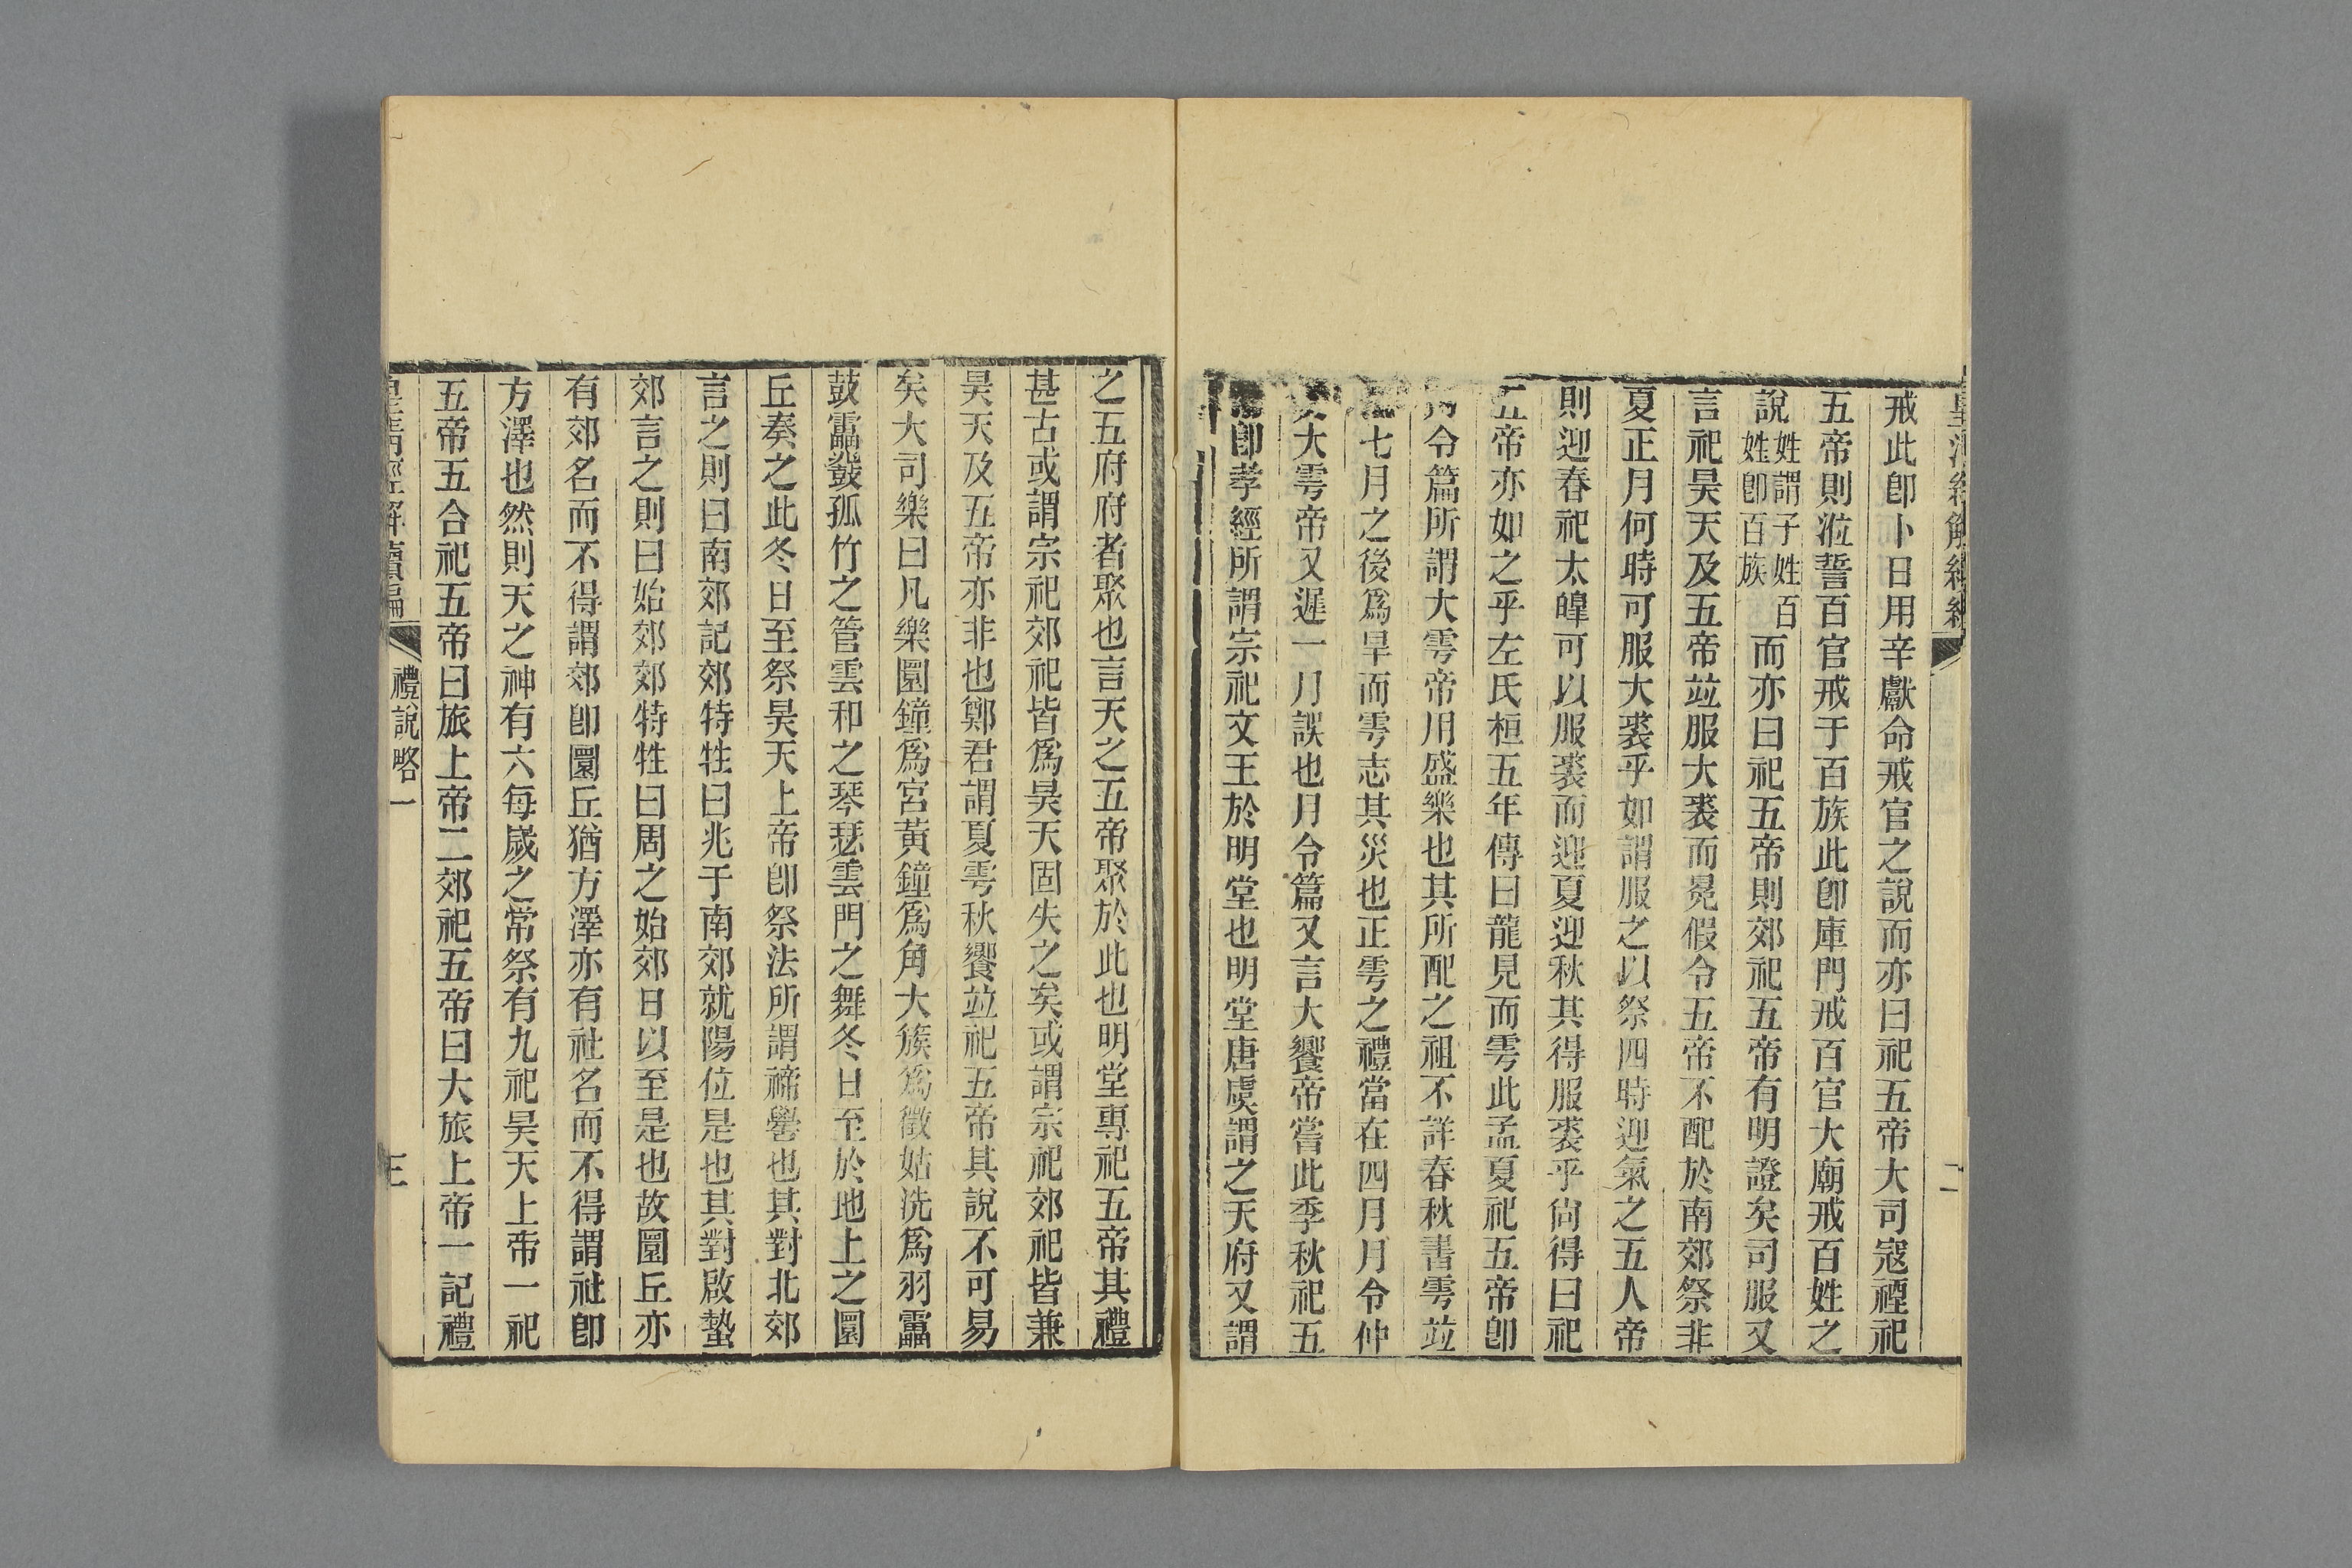 戒此卽卜日用辛獻命戒官之說而亦曰祀五帝大司寇禋祀
五帝則涖誓百官戒于百族此卽庫門戒百官大廟戒百姓之
說姓謂子姓百姓卽百族而亦曰祀五帝則郊祀五帝有明證矣司服又
言祀昊天及五帝竝服大裘而冕假令五帝不配於南郊祭非
夏正月何時可服大裘乎如謂服之以祭四時迎氣之五人帝
則迎春祀太皥可以服裘而迎夏迎秋其得服裘乎尙得曰祀
五帝亦如之乎左氏桓五年傳曰龍見而雩此孟夏祀五帝卽
令篇所謂大雩帝用盛樂也其所配之祖不詳春秋書雩竝
七月之後爲旱而雩志其災也正雩之禮當在四月月令仲
大雩帝又遲一月誤也月令篇又言大饗帝嘗此季秋祀五
卽孝經所謂宗祀文王於明堂也明堂唐虞謂之天府又謂
之五府府者聚也言天之五帝聚於此也明堂專祀五帝其禮
甚古或謂宗祀郊祀皆爲昊天固失之矣或謂宗祀郊祀皆兼
昊天及五帝亦非也鄭君謂夏雩秋饗竝祀五帝其說不可易
矣大司樂曰凡樂圜鐘爲宮黃鐘爲角大簇爲徵姑洗爲羽靁
鼓靁鼗孤竹之管雲和之琴瑟雲門之舞冬日至於地上之圜
丘奏之此冬日至祭昊天上帝卽祭法所謂禘嚳也其對北郊
言之則曰南郊記郊特牲曰兆于南郊就陽位是也其對啟蟄
郊言之則曰始郊郊特牲曰周之始郊日以至是也故圜丘亦
有郊名而不得謂郊卽圜丘猶方澤亦有社名而不得謂社卽
方澤也然則天之神有六每歲之常祭有九祀昊天上帝一祀
五帝五合祀五帝曰旅上帝二郊祀五帝曰大旅上帝一記禮
皇淸經解續編 禮說略一 三